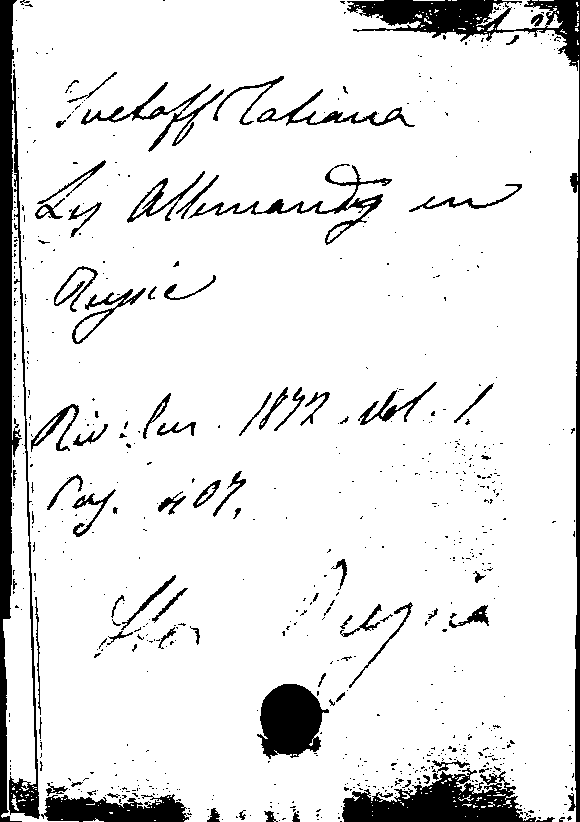 Svetoff Tatiana
Les Allemands en
Russie
Riv. Eur. 1872. Vol. 1.
Pag. 407.
Stor Russia